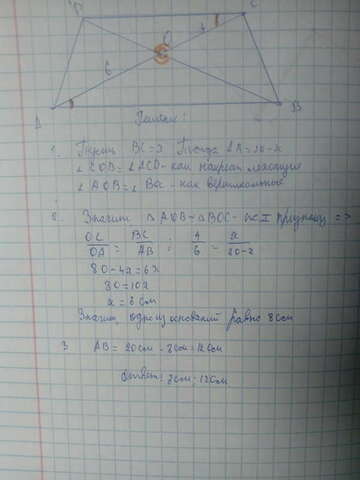 C
O
4
6
A
B
Решение:
1. BC = x Тогда = 20-x
как накрест лежащие
∠AOB = ∠BOC - как вертикальные
2. Значит △AOB ~ △BOC - по I признаку =>
OC/OA = BC/AB ; 4/6 = x/20-x
80-4x=6x
80=10x
x=8см
Значит, одно из оснований равно 8см
3 AB = 20см - 8см = 12см
Ответ: 8см 12см